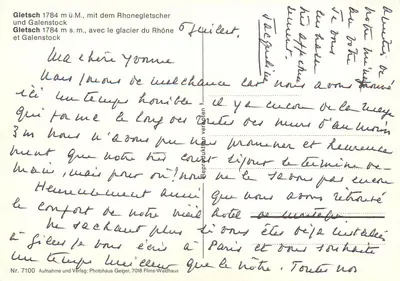 Gletsch 1784 m ü.M., mit dem Rhonegletscher
und Galenstock
Gletsch 1784 m s.m., avec le glacier du Rhône
et Galenstock
6 juillet.
Ma chère Yvonne
Nous jouons de malchance car nous avons trouvé
ici un temps horrible il y a encore de la neige
qui forme le long des routes des murs d'au moins
3m nous n'avons pu nous promener et heureuse
ment que notre très court séjour se termine de-
main, mais pour où! nous ne le savons pas encore
Heureusement aussi que nous avons retrouvé
le confort de notre vieil hotel
Ne sachant plus si vous êtes déjà installés
à Gilles je vous écris à Paris et vous souhaite
un temps meilleur que le nôtre. Toutes nos
amitiés de
notre
de votre
Je vous
embrasse
très affectueu
sement.
Jacqueline
Reproduktion verboten
Nr. 7100 Aufnahme und Verlag: Photohaus Geiger, 7018 Flims-Waldhaus